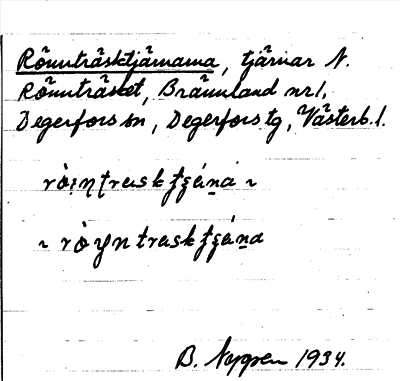 Rönnträsktjärnarna, tjärnar N.
Rönnträsket, Brännland nr 1,
Degerfors sn, Degerfors tg, Västerb. l.
rὸi̯ŋtrask ʈʂǽn̥a ~
~ rὸyn trask ʈʂǽn̥a
B. Nygren 1934.